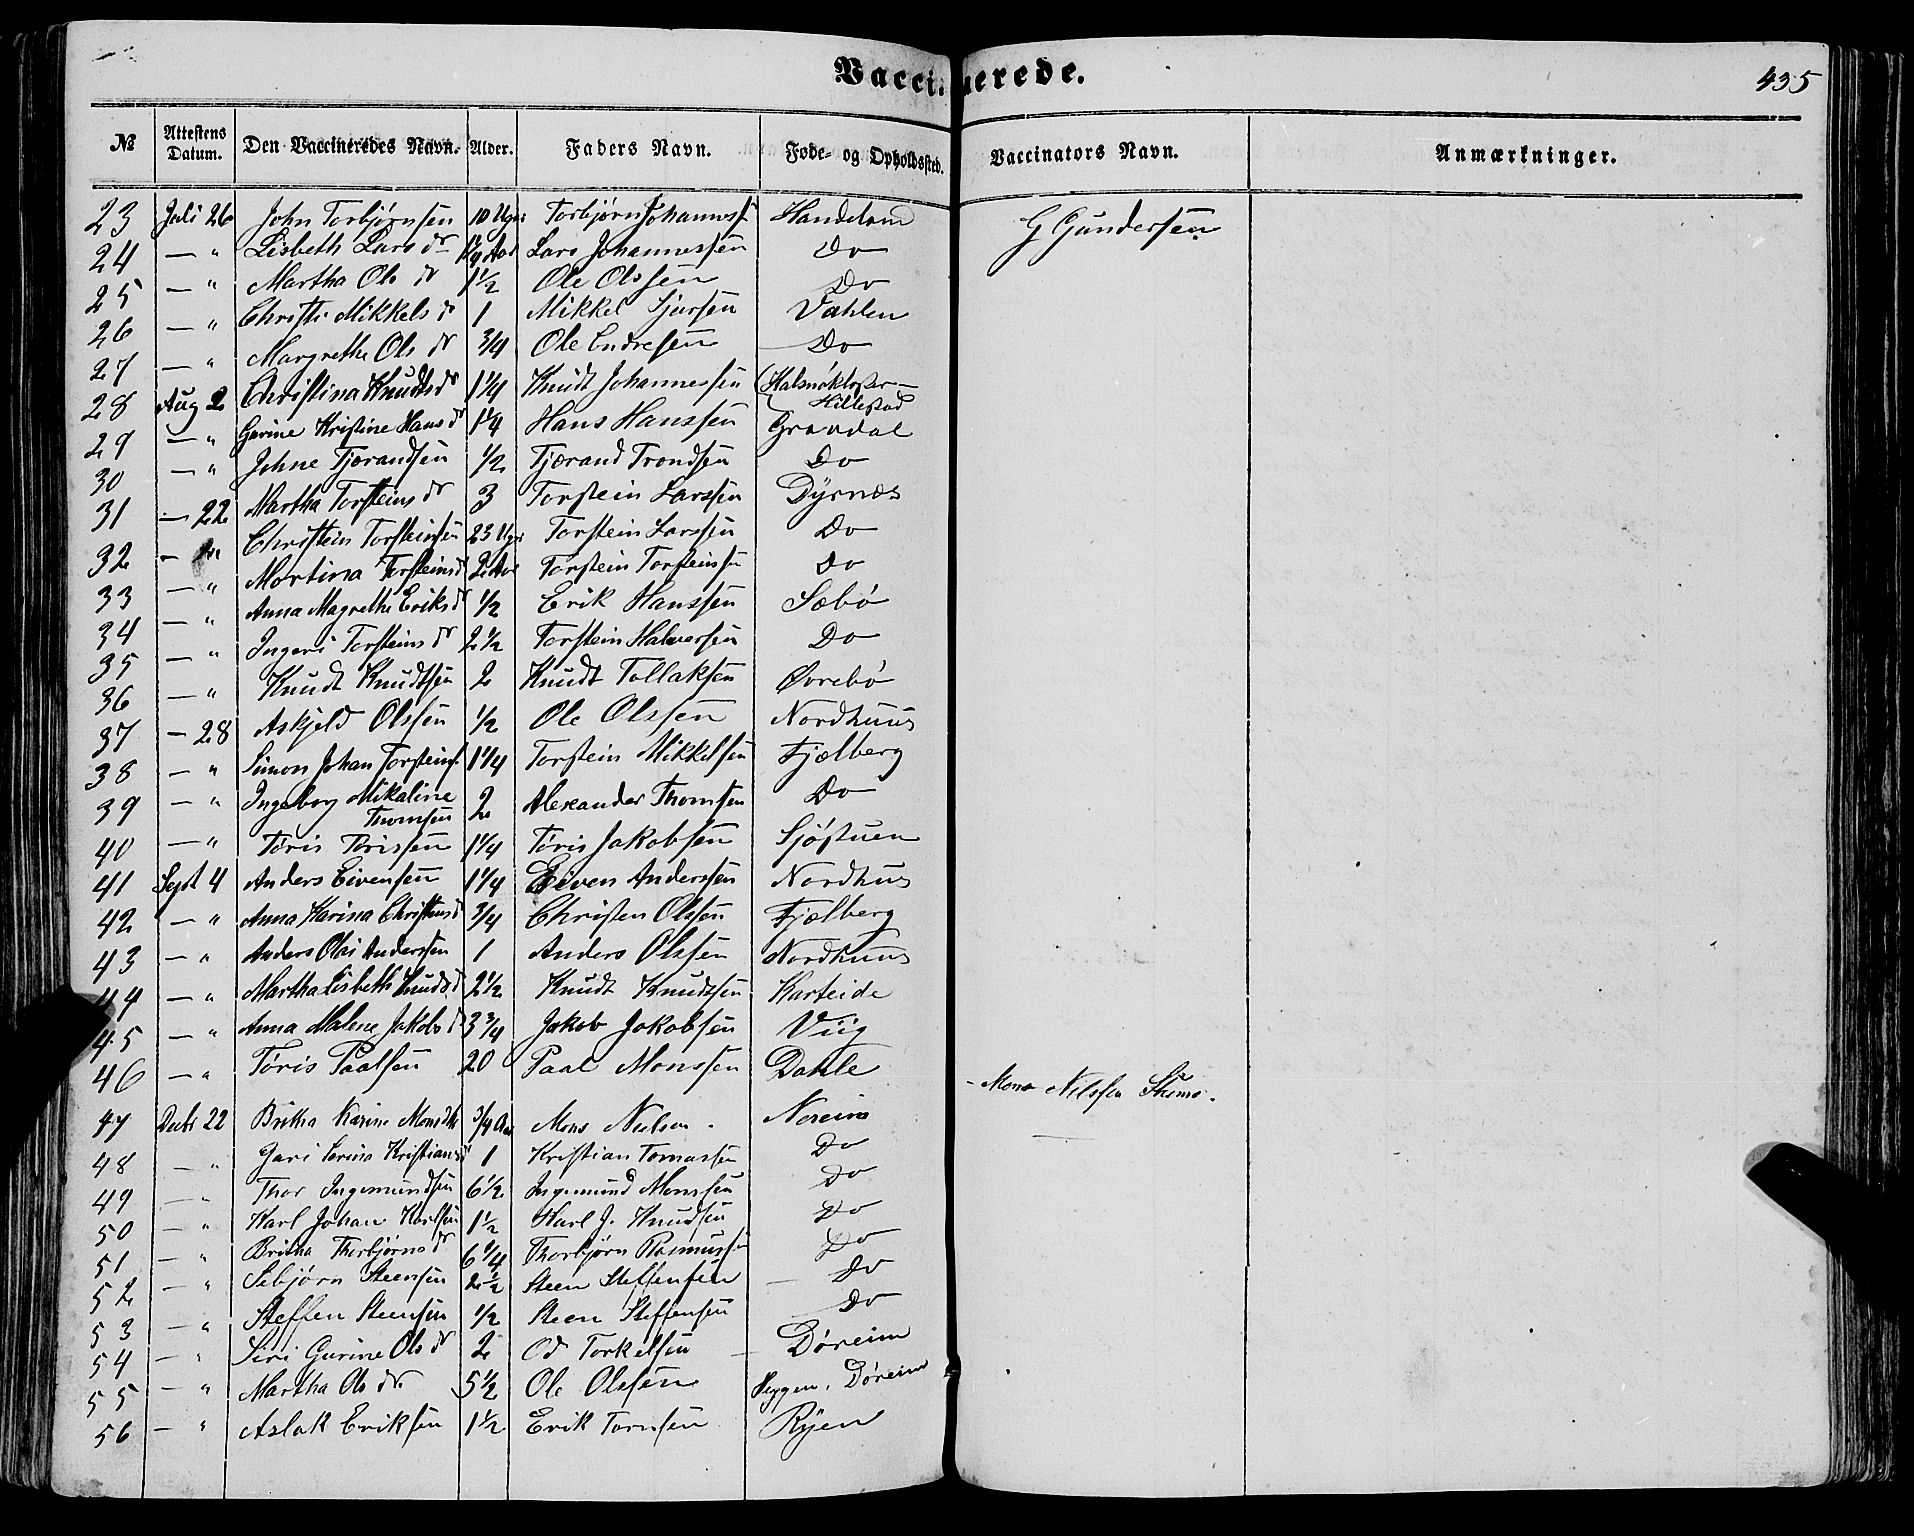 Vaccinerede.
435
№ Attestens Datum. Den Vaccineredes Navn. Alder. Faders Navn. Føde- og Opholdssted. Vaccinators Navn. Anmærkninger.
23 Juli 26 John Torbjørnsen 10 Uger Torbjørn Johanness Handeland G Gundersen
24 — " Lisbeth Lars dr Lars Johannessen Do
25 — " Martha Ols dr 1½ Ole Olssen Do
26 — " Christi Mikkels dr 1 Mikkel Sjursen Dahlen
27 — " Margrethe Ols dr ¾ Ole Endresen Do
28 Aug 2 Christina Knudts dr 1¼ Knudt Johannessen (Halsnøkloster—
Hillestad
29 — " Gurine Kristine Hans dr 1¼ Hans Hanssen Gravdal
30 — " Johne Tjærandsen ½ Tjærand Trondsen Do
31 — 22 Martha Torsteins dr 3 Torstein Larssen Dyrnæs
32 — " Christen Torsteinsen 23 Uger Torstein Larssen Do
33 — " Martina Torsteins dr 2 Aar Torstein Torsteinsen Do
34 — " Anna Magrethe Eriks dr ½ Erik Hanssen Sæbø
35 — " Ingeri Torsteins dr 2½ Torstein Halversen Do
36 — " Knudt Knudtsen 2 Knudt Tollaksen Øvrebø
37 — 28 Askjeld Olssen ½ Ole Olssen Nordhuus
38 — " Simon Johan Torsteins. 1¼ Torstein Mikkelsen Fjælberg
39 — " Ingeborg Mikaline
Thomsen 2 Alexander Thomsen Do
40 — " Tøris Tørissen 1¼ Tøris Jakobsen Sjøstuen
41 Sept 4 Anders Eivensen 1¼ Eiven Anderssen Nordhus
42 — " Anna Karina Christens d ¾ Christen Olssen Fjælberg
43 — " Anders Olai Anderssen 1 Anders Olssen Nordhuus
44 — " Martha Lisbeth Knuds d 2½ Knudt Knudtsen Karteide
45 — " Anna Malene Jakobs d 3¾ Jakob Jakobsen Viig
46 — " Tøris Paalsen 20 Paal Monssen Dahle
47 Decbr 22 Britha Karine Monsdtr ¾ Aar Mons Nielsen. Noreim - Mons Nilssen
48 — " Gari Serina Kristians d 1 Kristian Tomassen Do
49 — " Thor Ingemundsen 6½ Ingemund Monssen Do
50 — " Karl Johan Karlsen 1½ Karl J. Knudsen Do
51 — " Britha Thorbjørns dr 6¼ Thorbjørn Rasmussen Do
52 — " Sebjørn Steensen 2½ Steen Steffensen — Do
53 — " Steffen Steensen ½ Steen Steffensen Do
54 — " Siri Gurine Ols dr 2 Od Torkelsen — Døreim
55 — " Martha Ols dr. 5½ Ole Olssen Heggen, Døreim
56 — " Aslak Eriksen 1½ Erik Tornsen Ryen